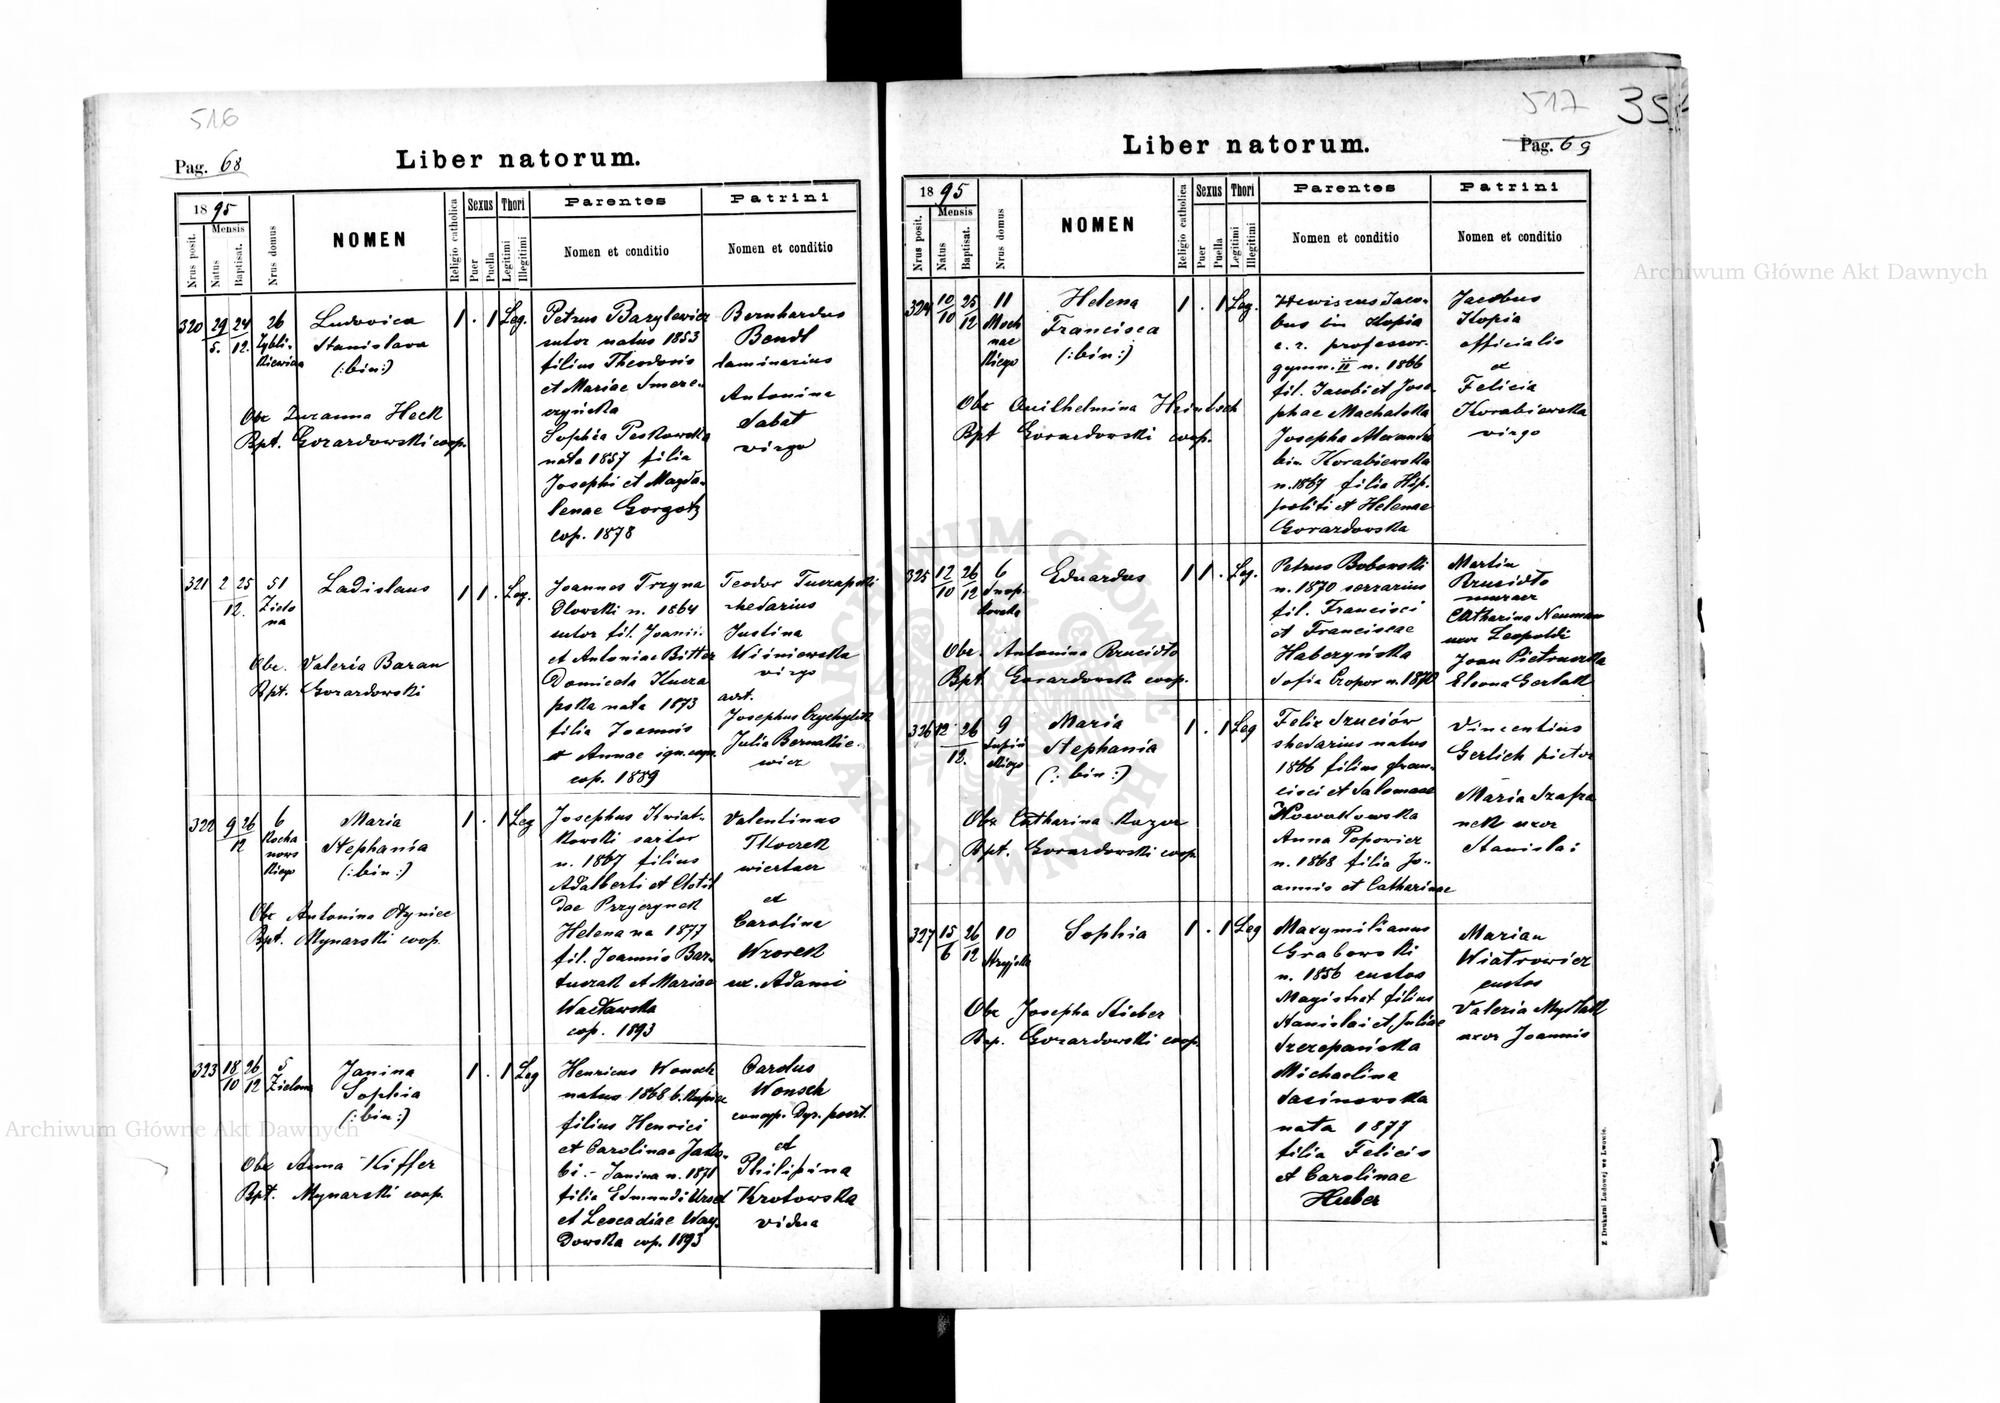 516
Pag. 68
Liber natorum.
1895
Mensis
Nrus posit.
Natus
Baptisat.
Nrus domus
NOMEN
Religio catholica
Sexus
Puer
Puella
Thori
Legitimi
Illegitimi
Parentes
Nomen et conditio
Patrini
Nomen et conditio
320 29/5. 24/12. 26
Ludovica
Stanislava
(:bin:)
1 . 1 Leg.
Obs Zuzanna Heck
Bpt. Gorazdowski coop.
Petrus Barylewicz
sutor natus 1853
filius Theodoris
et Mariae Smere-
czyńska
Sophia Peskowska
nata 1857 filia
Josephi et Magda-
lenae Gorgotz
cop. 1878
Bernhardus
Bendl
laminarius
Antonina
Sabat
virgo
321 2 25/12. 51
Zielo
na
Ladislaus
1 1 . Leg.
Obs. Valeria Baran
Bpt. Gorazdowski
Joannes Trzyna
dlowski n. 1864
sutor fil. Joanii.
et Antoniae Bitter
Domicela Kucza
pska nata 1873
filia Joannis
et Annae
cop. 1889
Teodor
shedarius
Justina
Wiśniewska
virgo
ast.
Josephus
Julia Bernatkie-
wicz
322 9 26/12 6
Kocha
nows
kiego
Maria
Stephania
(:bin:)
1 . 1 Leg
Obs Antonina Hyniec
Bpt. Mynarski coop.
Josephus Kwiat-
kowski sartor
n. 1867 filius
Adalberti et Clotil
dae Przyczynek
Helena na 1877
fil. Joannis Bar-
tuszak et Mariae
Wacławska
cop. 1893
Valentinus
Tkoczek
et
Carolina
Wzorek
ux. Adami
323 18/10 26/12 5
Zielona
Janina
Sophia
(:bin:)
1 . 1 Leg
Obs Anna Kiffer
Bpt. Mynarski coop.
Henricus Wonsch
natus 1868
filius Henrici
et Carolinae Jako-
bi - Janina n. 1871
filia Edmundi
et Leocadiae Way-
dowska cop. 1893
Carolus
Wonsch
et
Philipina
Krotowska
vidua
517
35
Pag. 69
Liber natorum.
1895
Mensis
Nrus posit.
Natus
Baptisat.
Nrus domus
NOMEN
Religio catholica
Sexus
Puer
Puella
Thori
Legitimi
Illegitimi
Parentes
Nomen et conditio
Patrini
Nomen et conditio
324 10/10 25/12 11
Moch
nac
kiego
Helena
Francisca
(:bin:)
1 . 1 Leg.
Obs Guilhelmina Heintsch
Bpt Gorazdowski coop.
Jaco-
bus bin Kopia
c. r. professor
gymn. II n. 1866
fil. Jacobi et Jose-
phae Machalska
Josepha Alexandra
bin. Korabiewska
n. 1867 filia Hip-
politi et Helenae
Gorazdowska
Jacobus
Kopia
officialis
et
Felicia
Korabiewska
virgo
325 12/10 26/12 6
Snop-
kowska
Eduardus
1 1 . Leg.
Obs. Antonina Brucidło
Bpt Gorazdowski coop.
Petrus Bobowski
n. 1870 serrarius
fil. Francisci
et Franciscae
Habczyńska
Sofia Czopor n. 1870
Martin
Brucidło
murarz
Catharina Neuman
uxor Leopoldi
Joan Pietruszka
Eleona Gerlak
326 12 26/12. 9
Supiń
skiego
Maria
Stephania
(: bin:)
1 . 1 Leg
Obs Catharina Kozor
Bpt. Gorazdowski coop.
Felix Szuciów
shedarius natus
1866 filius Fran-
cisci et Salomeae
Nowakowska
Anna Popowicz
n. 1868 filia Jo-
annis et Catharinae
Vincentius
Gerlich pictor
Maria Szafra
nek uxor
Stanislai
327 15/6 26/12 10
Stryjska
Sophia
1 . 1 Leg
Obs Josepha Stieber
Bap. Gorazdowski coop.
Maxymilianus
Grabowski
n. 1856 custos
Magistrat filius
Stanislai et Juliae
Szczepańska
Michaelina
Sasinowska
nata 1877
filia Felicis
et Carolinae
Huber
Marian
Wiatrowicz
custos
Valeria Mysłak
uxor Joannis
Z Drukarni Ludowej we Lwowie.
Archiwum Główne Akt Dawnych
Archiwum Główne Akt Dawnych
ARCHIWUM GŁÓWNE AKT DAWNYCH